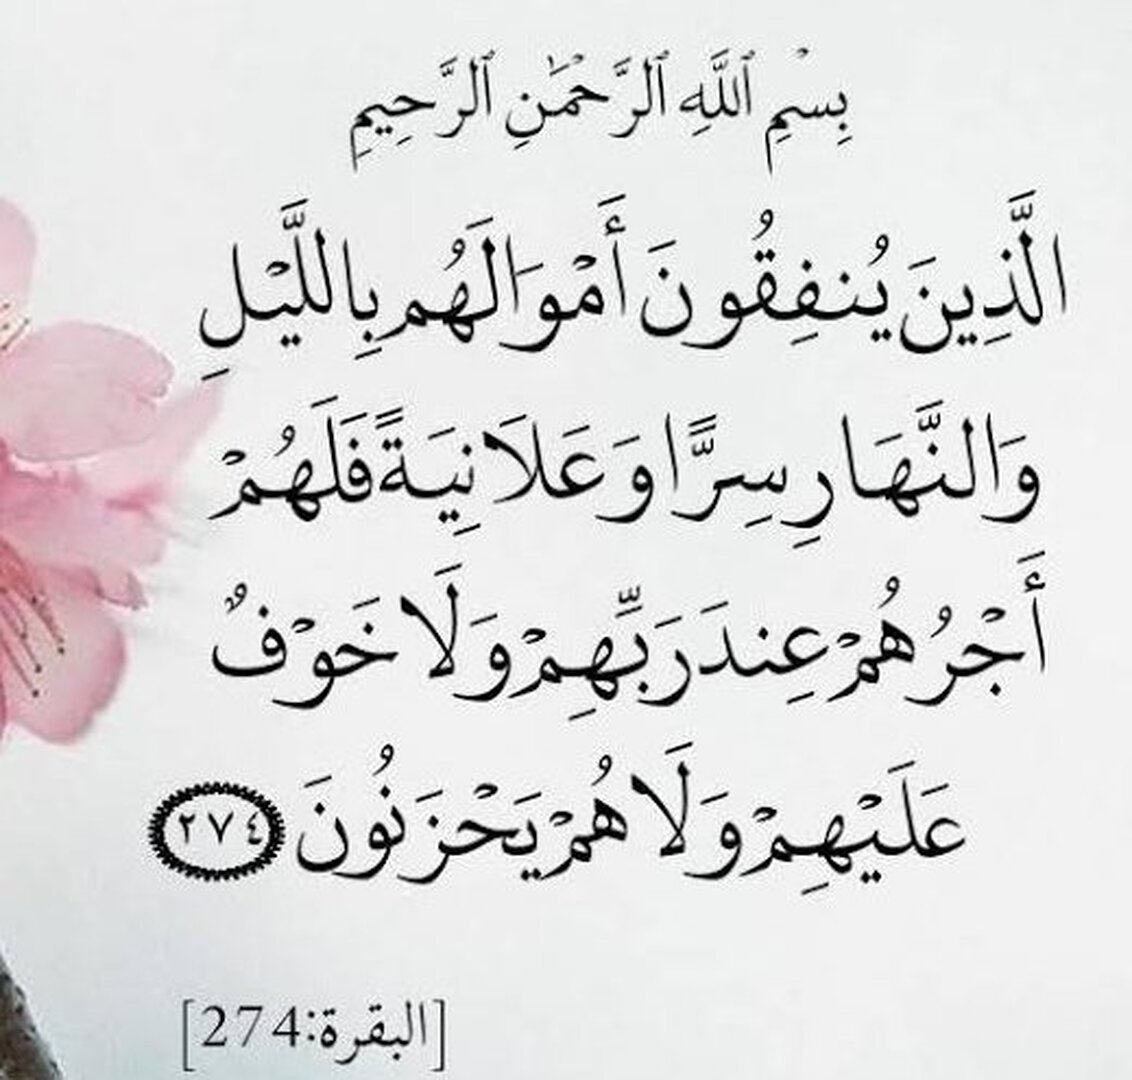 بِسْمِ ٱللَّهِ ٱلرَّحْمَٰنِ ٱلرَّحِيمِ
الَّذِينَ يُنفِقُونَ أَمْوَالَهُم بِاللَّيْلِ
وَالنَّهَارِ سِرًّا وَعَلَانِيَةً فَلَهُمْ
أَجْرُهُمْ عِندَ رَبِّهِمْ وَلَا خَوْفٌ
عَلَيْهِمْ وَلَا هُمْ يَحْزَنُونَ ٢٧٤
[البقرة:274]